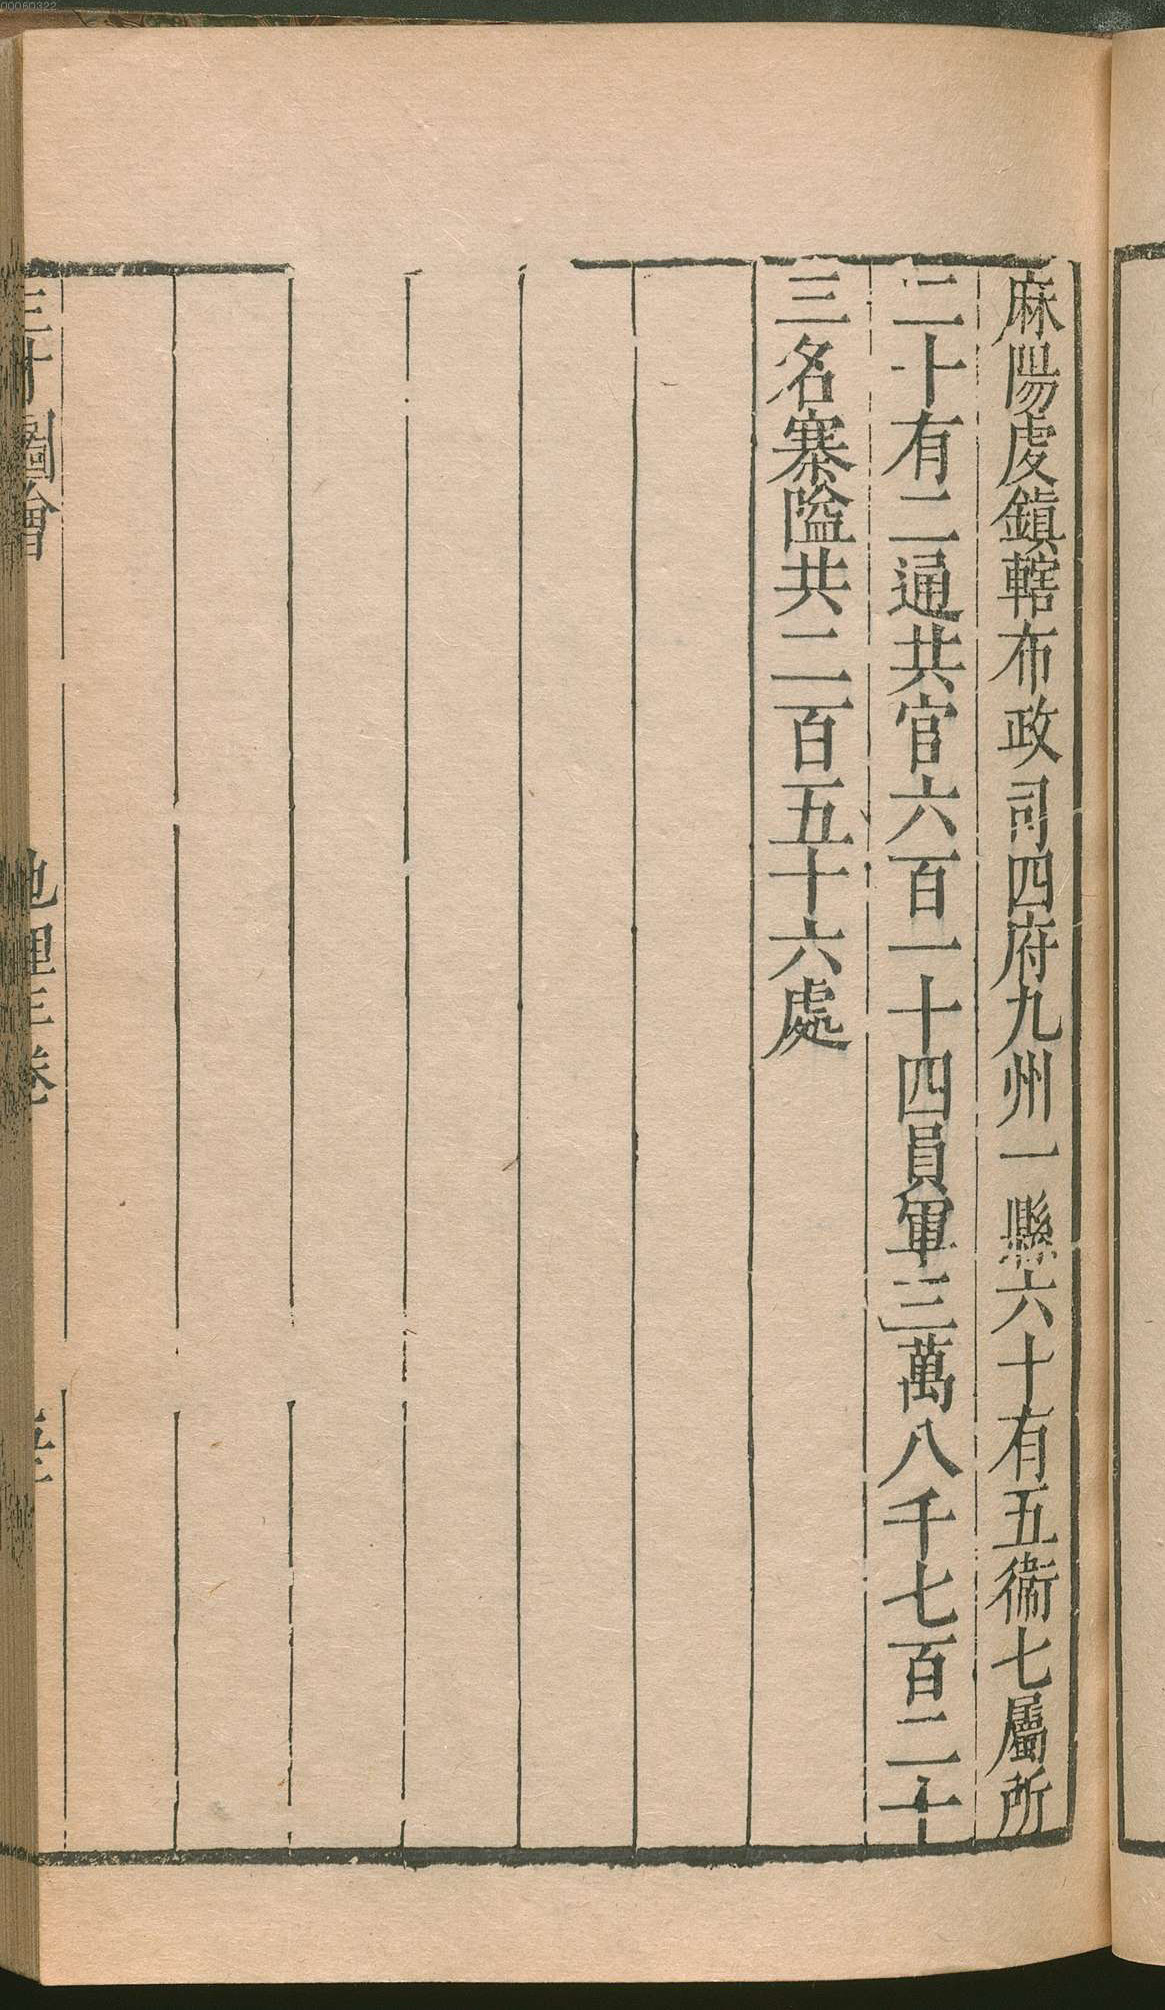 麻陽䖏鎮轄布政司四府九州一縣六十有五衞七屬所
二十有二通共官六百一十四員軍三萬八千七百二十
三名寨隘共二百五十六處
圖會
地理三卷
00060322